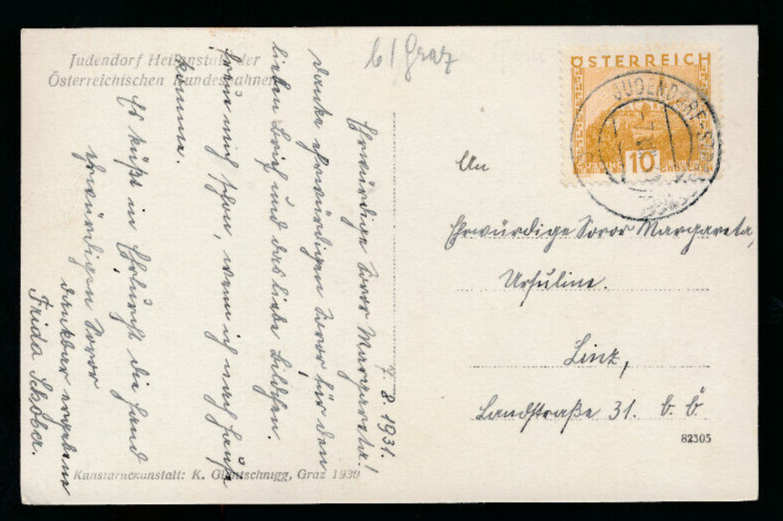 Judendorf Heilanstalt der
Österreichischen Bundesbahnen
b/Graz
7. 8. 1931.
Ehrwürdige Soror Margareta!
Danke ehrwürdigen Soror für den
lieben Brief und das liebe Bildchen.
Freue mich schon, wenn ich nach Hause
komme.
Es küßt in Ehrfurcht die Hand
ehrwürdigen Soror
dankbar ergebene
Frida Schober.
ÖSTERREICH
10
JUDENDORF-S
An
Ehrwürdige Soror Margareta,
Ursuline.
Linz,
Landstraße 31. O. Ö
82305
Kunstdruckanstalt: K. Glantschnigg, Graz 1930